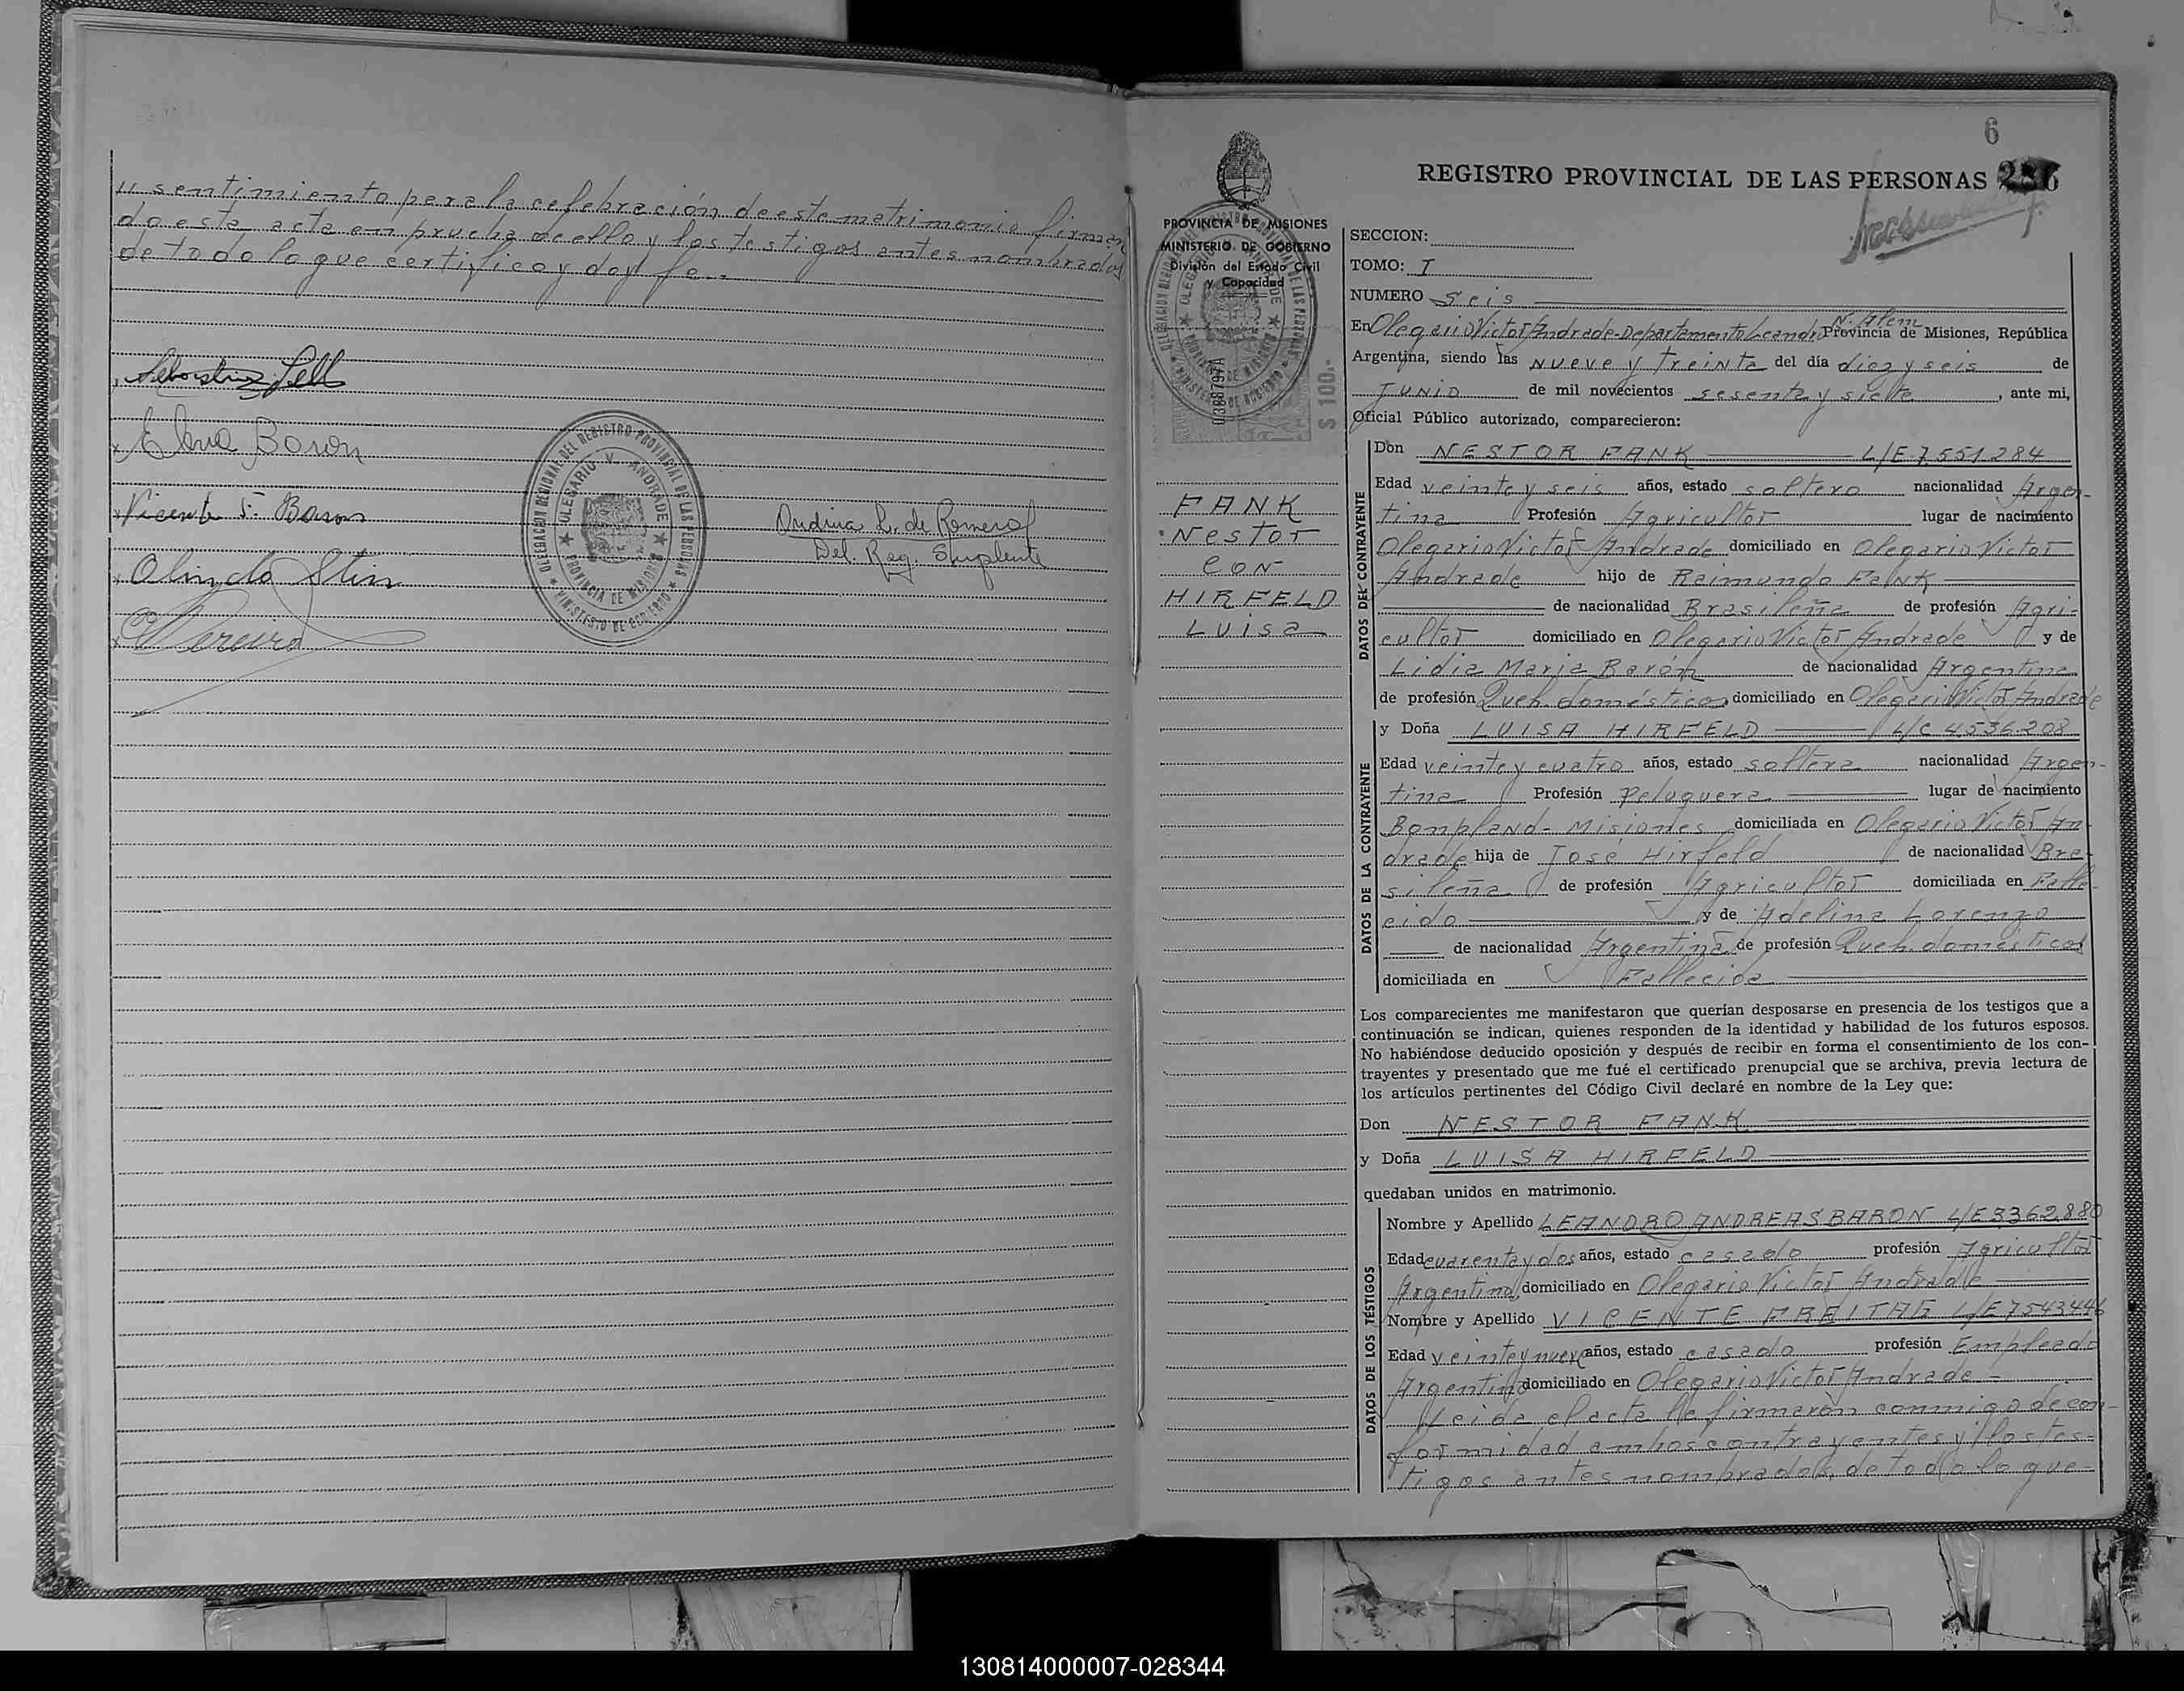 " sentimiento para la celebración de este matrimonio firman
do esta acta en prueba de ello y los testigos antes nombrados
de todo lo que certifico y doy fe..
Elena Baron
Vicente F. Baron
Olindo Stein
Pereira
DELEGACION REGIONAL DEL REGISTRO PROVINCIAL DE LAS PERSONAS
OLEGARIO V. ANDRADE
PROVINCIA DE MISIONES
MINISTERIO DE GOBIERNO
Ondina L. de Romero
Del. Reg. Suplente
6
REGISTRO PROVINCIAL DE LAS PERSONAS
PROVINCIA DE MISIONES
MINISTERIO DE GOBIERNO
División del Estado Civil
y Capacidad
$ 100.-
FANK
Nestor
con
HIRFELD
Luisa
SECCION:
TOMO: I
NUMERO Seis
En Olegario Victor Andrade-Departamento Leandro N. Alem Provincia de Misiones, República
Argentina, siendo las nueve y treinta del día diez y seis de
Junio de mil novecientos sesenta y siete, ante mi,
Oficial Público autorizado, comparecieron:
DATOS DEL CONTRAYENTE
Don NESTOR FANK L/E 7.551.284
Edad veinte y seis años, estado soltero nacionalidad Argen-
tina Profesión Agricultor lugar de nacimiento
Olegario Victor Andrade domiciliado en Olegario Victor
Andrade hijo de Raimundo Fank
de nacionalidad Brasileña de profesión Agri-
cultor domiciliado en Olegario Victor Andrade y de
Lidia Maria Barón de nacionalidad Argentina
de profesión Queh. domésticos domiciliado en Olegario Victor Andrade
DATOS DE LA CONTRAYENTE
y Doña LUISA HIRFELD L/C 4536.208
Edad veinte y cuatro años, estado soltera nacionalidad Argen-
tina Profesión Peluquera lugar de nacimiento
Bonpland - Misiones domiciliada en Olegario Victor An-
drade hija de José Hirfeld de nacionalidad Bra-
sileña de profesión Agricultor domiciliada en Falle-
cido y de Adelina Lorenzo
de nacionalidad Argentina de profesión Queh. domésticos
domiciliada en Fallecida
Los comparecientes me manifestaron que querían desposarse en presencia de los testigos que a
continuación se indican, quienes responden de la identidad y habilidad de los futuros esposos.
No habiéndose deducido oposición y después de recibir en forma el consentimiento de los con-
trayentes y presentado que me fué el certificado prenupcial que se archiva, previa lectura de
los artículos pertinentes del Código Civil declaré en nombre de la Ley que:
Don NESTOR FANK
y Doña LUISA HIRFELD
quedaban unidos en matrimonio.
DATOS DE LOS TESTIGOS
Nombre y Apellido LEANDRO ANDREAS BARON L/E 3362.880
Edad cuarenta y dos años, estado casado profesión Agricultor
Argentino domiciliado en Olegario Victor Andrade
Nombre y Apellido VICENTE FREITAG L/E 7543446
Edad veinte y nueve años, estado casado profesión Empleado
Argentino domiciliado en Olegario Victor Andrade -
Leida el acta la firmaron conmigo de con-
formidad ambos contrayentes y los tes-
tigos antes nombrados, de todo lo que-
130814000007-028344